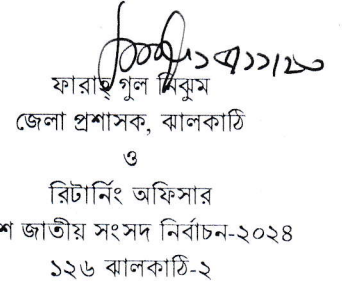 ফারাহ্ গুল নিঝুম
জেলা প্রশাসক, ঝালকাঠি
ও
রিটার্নিং অফিসার
জাতীয় সংসদ নির্বাচন-২০২৪
১২৬ ঝালকাঠি-২